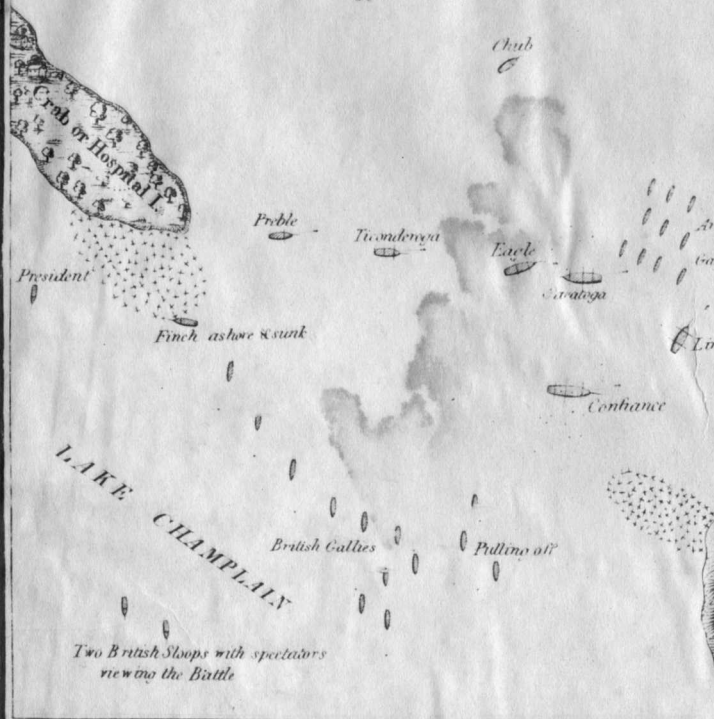 Chub
Crab or Hospital I.
Preble
Ticonderoga
Eagle
Saratoga
President
Finch ashore & sunk
Confiance
LAKE CHAMPLAIN
British Gallies
Pulling off
Two British Sloops with spectators
viewing the Battle